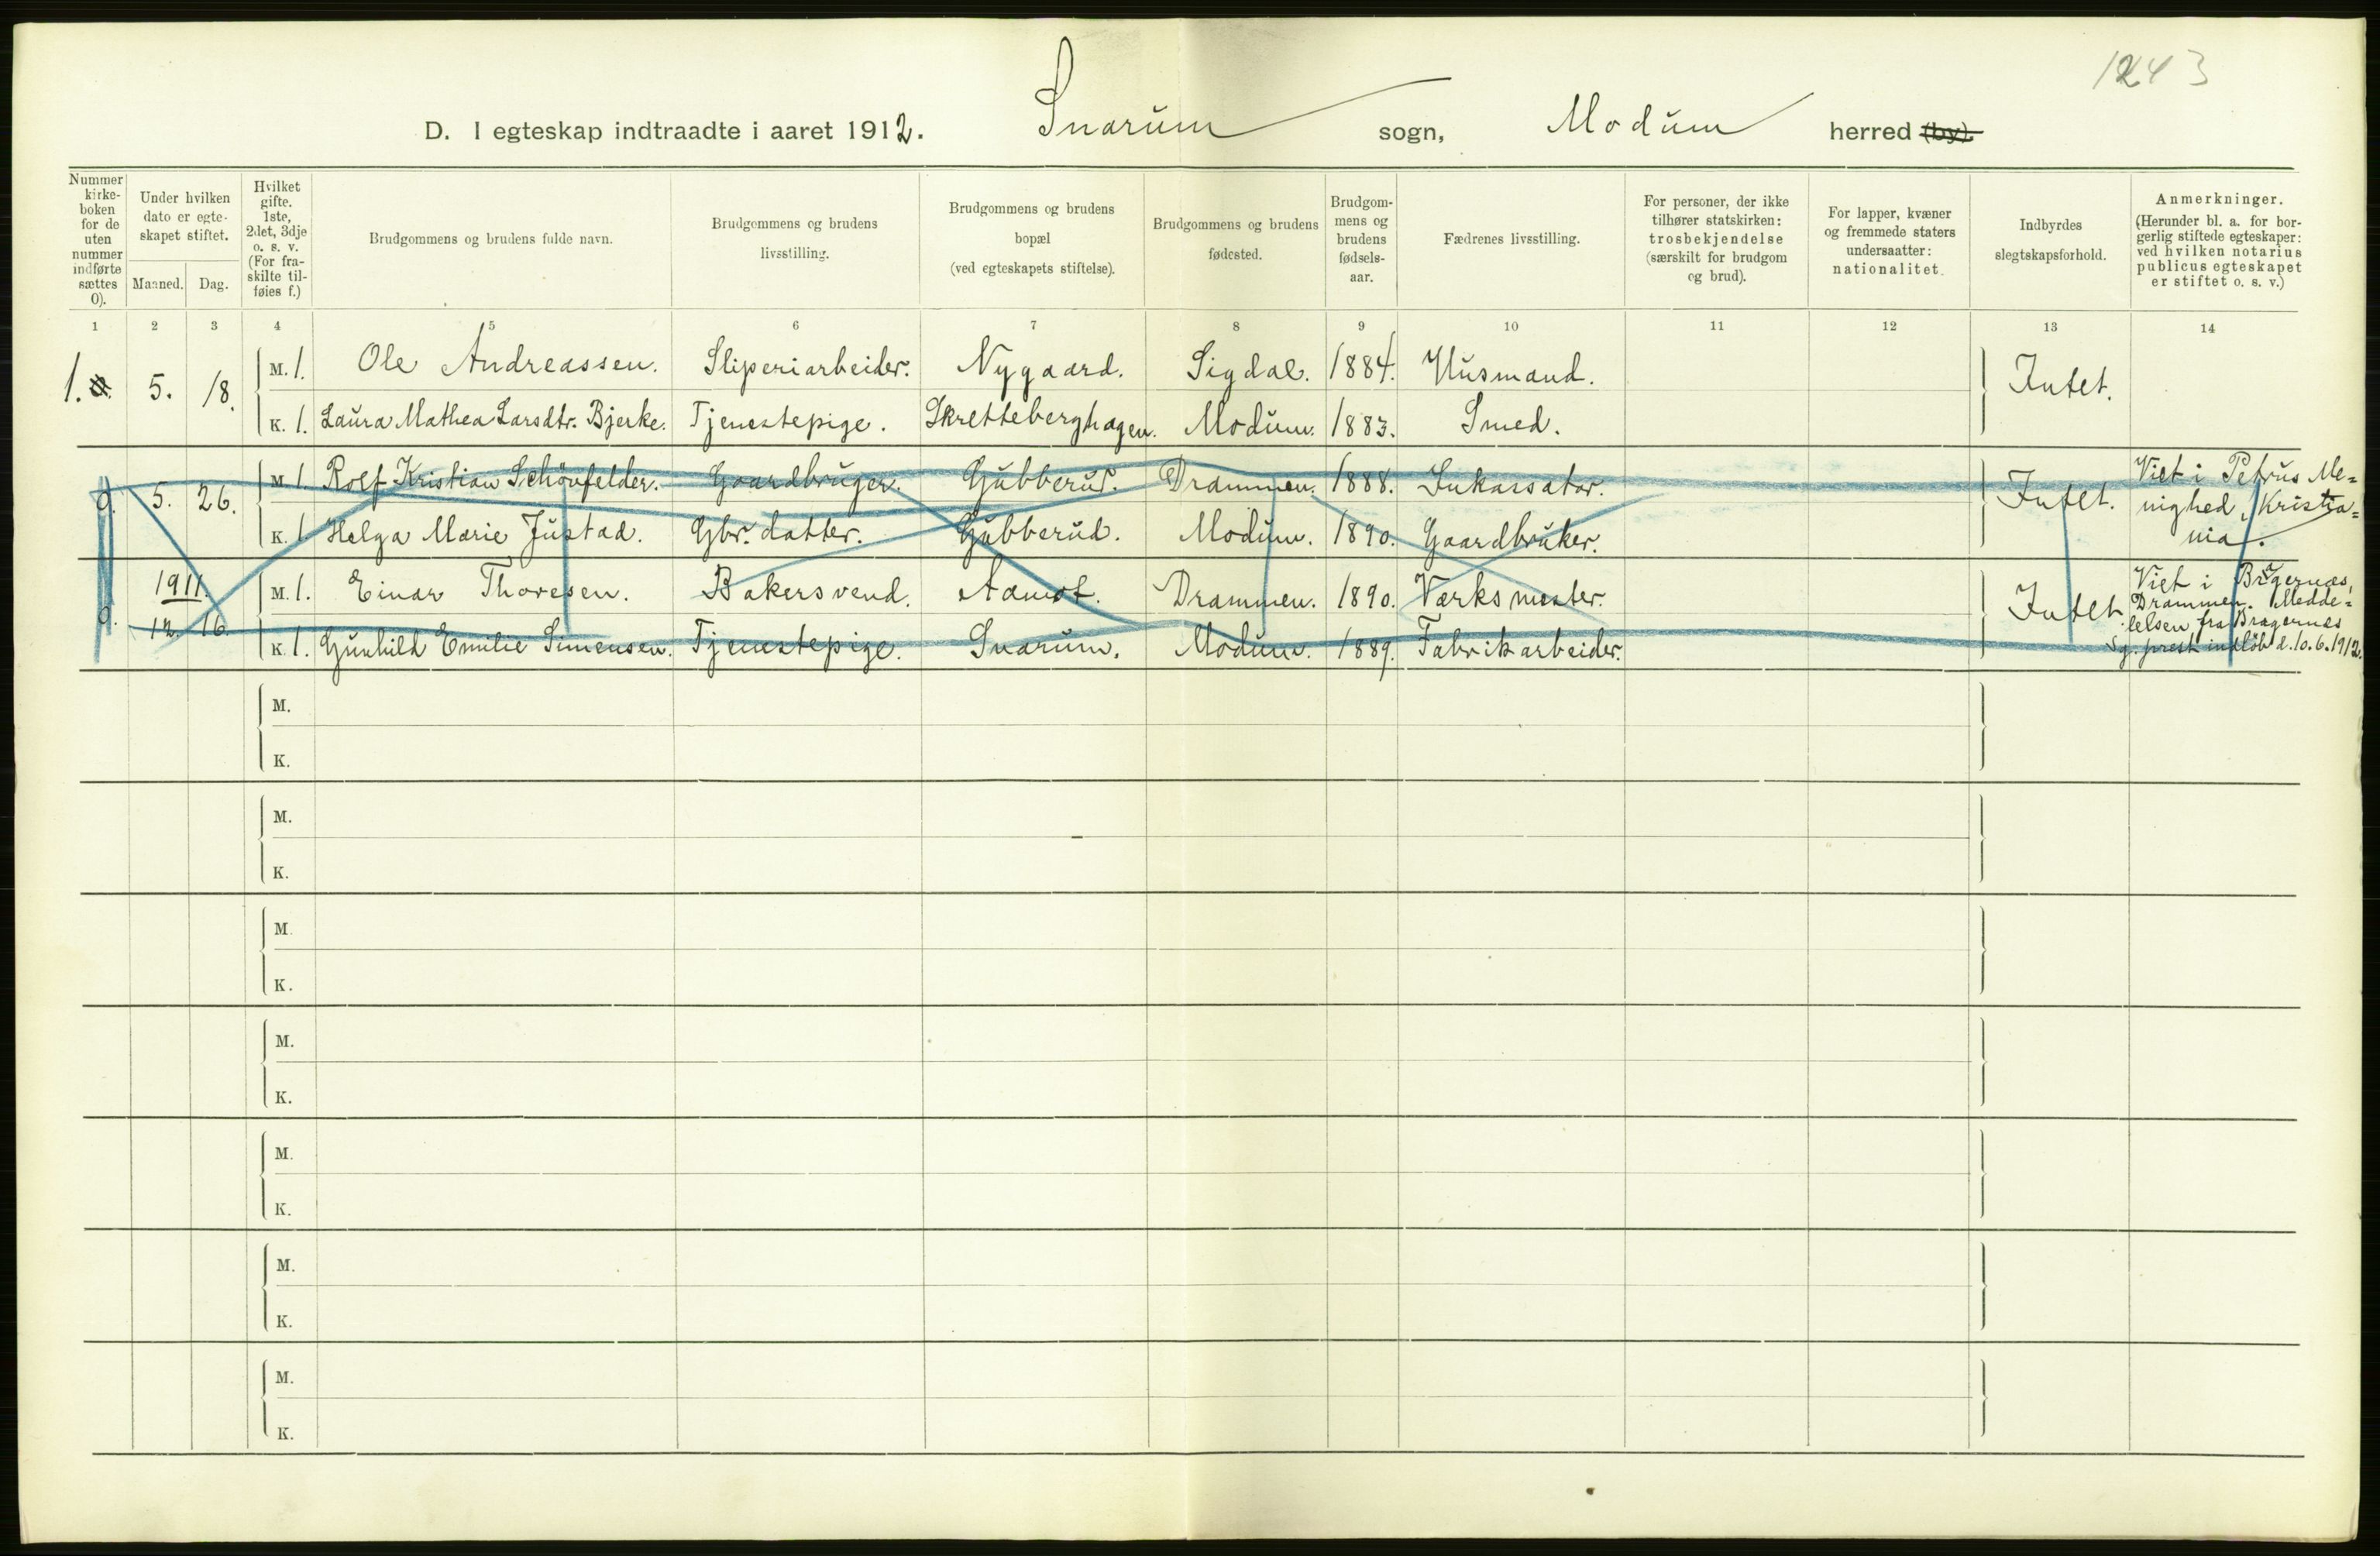 1243
D. I egteskap indtraadte i aaret 1912. Snarum sogn, Modum herred (by).
Nummer kirkeboken for de uten nummer indførte sættes 0).
Under hvilken dato er egteskapet stiftet.
Maaned. Dag.
Hvilket gifte. 1ste, 2det, 3dje o. s. v. (For fraskilte tilføies f.)
Brudgommens og brudens fulde navn.
Brudgommens og brudens livsstilling.
Brudgommens og brudens bopæl (ved egteskapets stiftelse).
Brudgommens og brudens fødested.
Brudgommens og brudens fødselsaar.
Fædrenes livsstilling.
For personer, der ikke tilhører statskirken: trosbekjendelse (særskilt for brudgom og brud).
For lapper, kvæner og fremmede staters undersaatter: nationalitet.
Indbyrdes slegtskapsforhold.
Anmerkninger. (Herunder bl. a. for borgerlig stiftede egteskaper: ved hvilken notarius publicus egteskapet er stiftet o. s. v.)
1 2 3 4 5 6 7 8 9 10 11 12 13 14
1. 5. 18. M. 1. Ole Andreassen. Sliperiarbeider. Nygaard. Sigdal. 1884. Husmand. Intet.
K. 1. Laura Mathea Larsdtr. Bjerke. Tjenestepige. Skretteberghagen. Modum. 1883. Smed.
0. 5. 26. M. 1. Rolf Kristian Schönfelder. Gaardbruger. Gubberud. Drammen. 1888. Inkassator. Intet. Viet i Petrus Me=
nighed, Kristia=
nia.
K. 1. Helga Marie Justad. Gbr. datter. Gubberud. Modum. 1890. Gaardbruker.
0. 1911. 12. 16. M. 1. Einar Thoresen. Bakersvend. Aamot. Drammen. 1890. Værksmester. Intet. Viet i Bragernæs,
Drammen. Medde=
lelsen fra Bragernes
Sg. prest indløb d. 10.6.1912.
K. 1. Gunhild Emilie Simensen. Tjenestepige. Snarum. Modum. 1889. Fabrikarbeider.
M.
K.
M.
K.
M.
K.
M.
K.
M.
K.
M.
K.
M.
K.